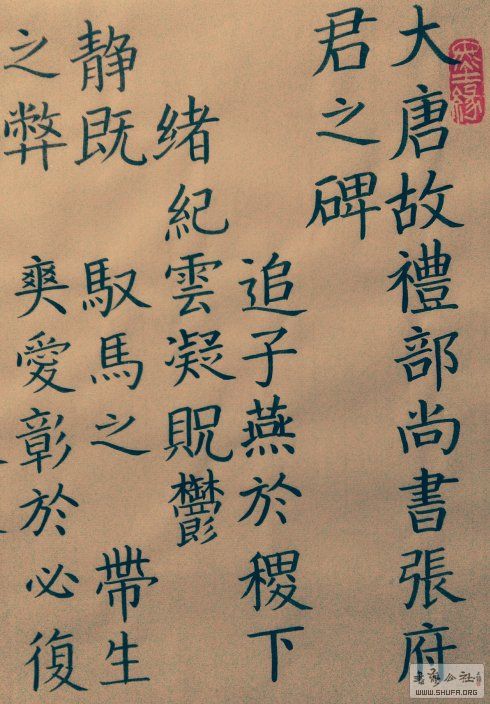 大唐故禮部尚書張府
君之碑
追子燕於稷下
緒紀雲凝貺鬱
静既馭馬之帶生
之弊爽愛彰於必復
書法公社
WWW.SHUFA.ORG